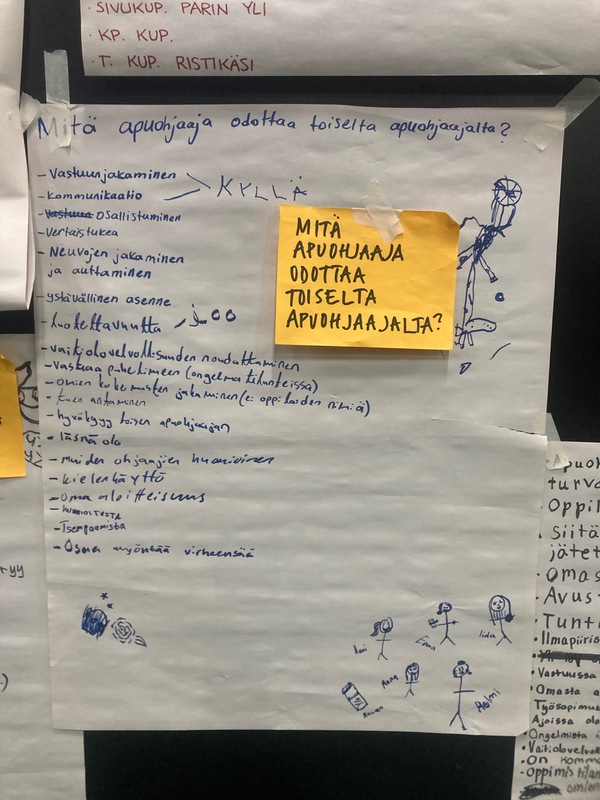 · SIVUKUP. PARIN YLI
· KP. KUP.
· T. KUP. RISTIKÄSI
Mitä apuohjaaja odottaa toiselta apuohjaajalta?
- Vastuunjakaminen
- kommunikaatio
KYLLÄ
- osallistuminen
- vertaistukea
- Neuvojen jakaminen
ja auttaminen
- ystävällinen asenne
- luotettavuutta
- vaitiolovelvollisuuden noudattaminen
- vastaa puhelimeen (ongelma tilanteissa)
- omien kokemusten jakaminen (ei oppilaiden nimiä)
- tuen antaminen
- hyväksyy toisen apuohjaajan
- läsnäolo
- muiden ohjaajien huomioiminen
- kielenkäyttö
- oma aloitteisuus
- Tsemppaamista
- Osaa myöntää virheensä
MITÄ
APUOHJAAJA
ODOTTAA
TOISELTA
APUOHJAAJALTA?
Emma
Iida
Holmi
turva
· Oppil
siitä
jätet
· Omas
· Avus
· Tunt
· Ilmapiiris
· Vastuussa
· Omasta a
Työsopimu
Ajoissa olo
· Ongelmista
· Vaitiolovelvol
· On komm
- Oppimistilan
omien